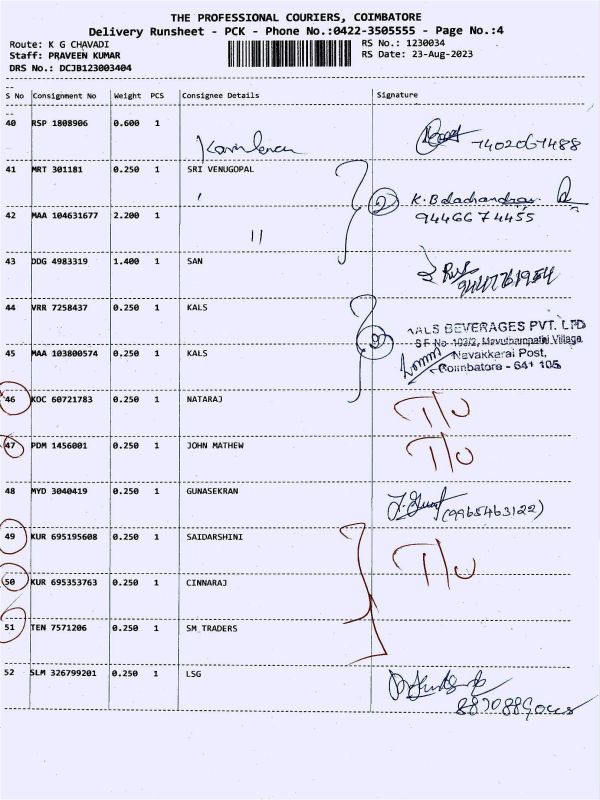 THE PROFESSIONAL COURIERS, COIMBATORE
Delivery Runsheet - PCK - Phone No.:0422-3505555 - Page No.:4
Route: K G CHAVADI RS No.: 1230034
Staff: PRAVEEN KUMAR RS Date: 23-Aug-2023
DRS No.: DCJB123003404
S No Consignment No Weight PCS Consignee Details Signature
40 RSP 1808906 0.600 1
41 MRT 301181 0.250 1 SRI VENUGOPAL
2 K. Balachandran
42 MAA 104631677 2.200 1 11 9446674455
43 DDG 4983319 1.400 1 SAN
44 VRR 7258437 0.250 1 KALS
2 KALS BEVERAGES PVT. LTD
S F No 103/2, Mavuthampathi Village
45 MAA 103800574 0.250 1 KALS Navakkarai Post,
Coimbatore - 641 105
46 KOC 60721783 0.250 1 NATARAJ T/U
47 PDM 1456001 0.250 1 JOHN MATHEW T/U
48 MYD 3040419 0.250 1 GUNASEKRAN (9965463122)
49 KUR 695195608 0.250 1 SAIDARSHINI T/U
50 KUR 695353763 0.250 1 CINNARAJ
51 TEN 7571206 0.250 1 SM_TRADERS
52 SLM 326799201 0.250 1 LSG